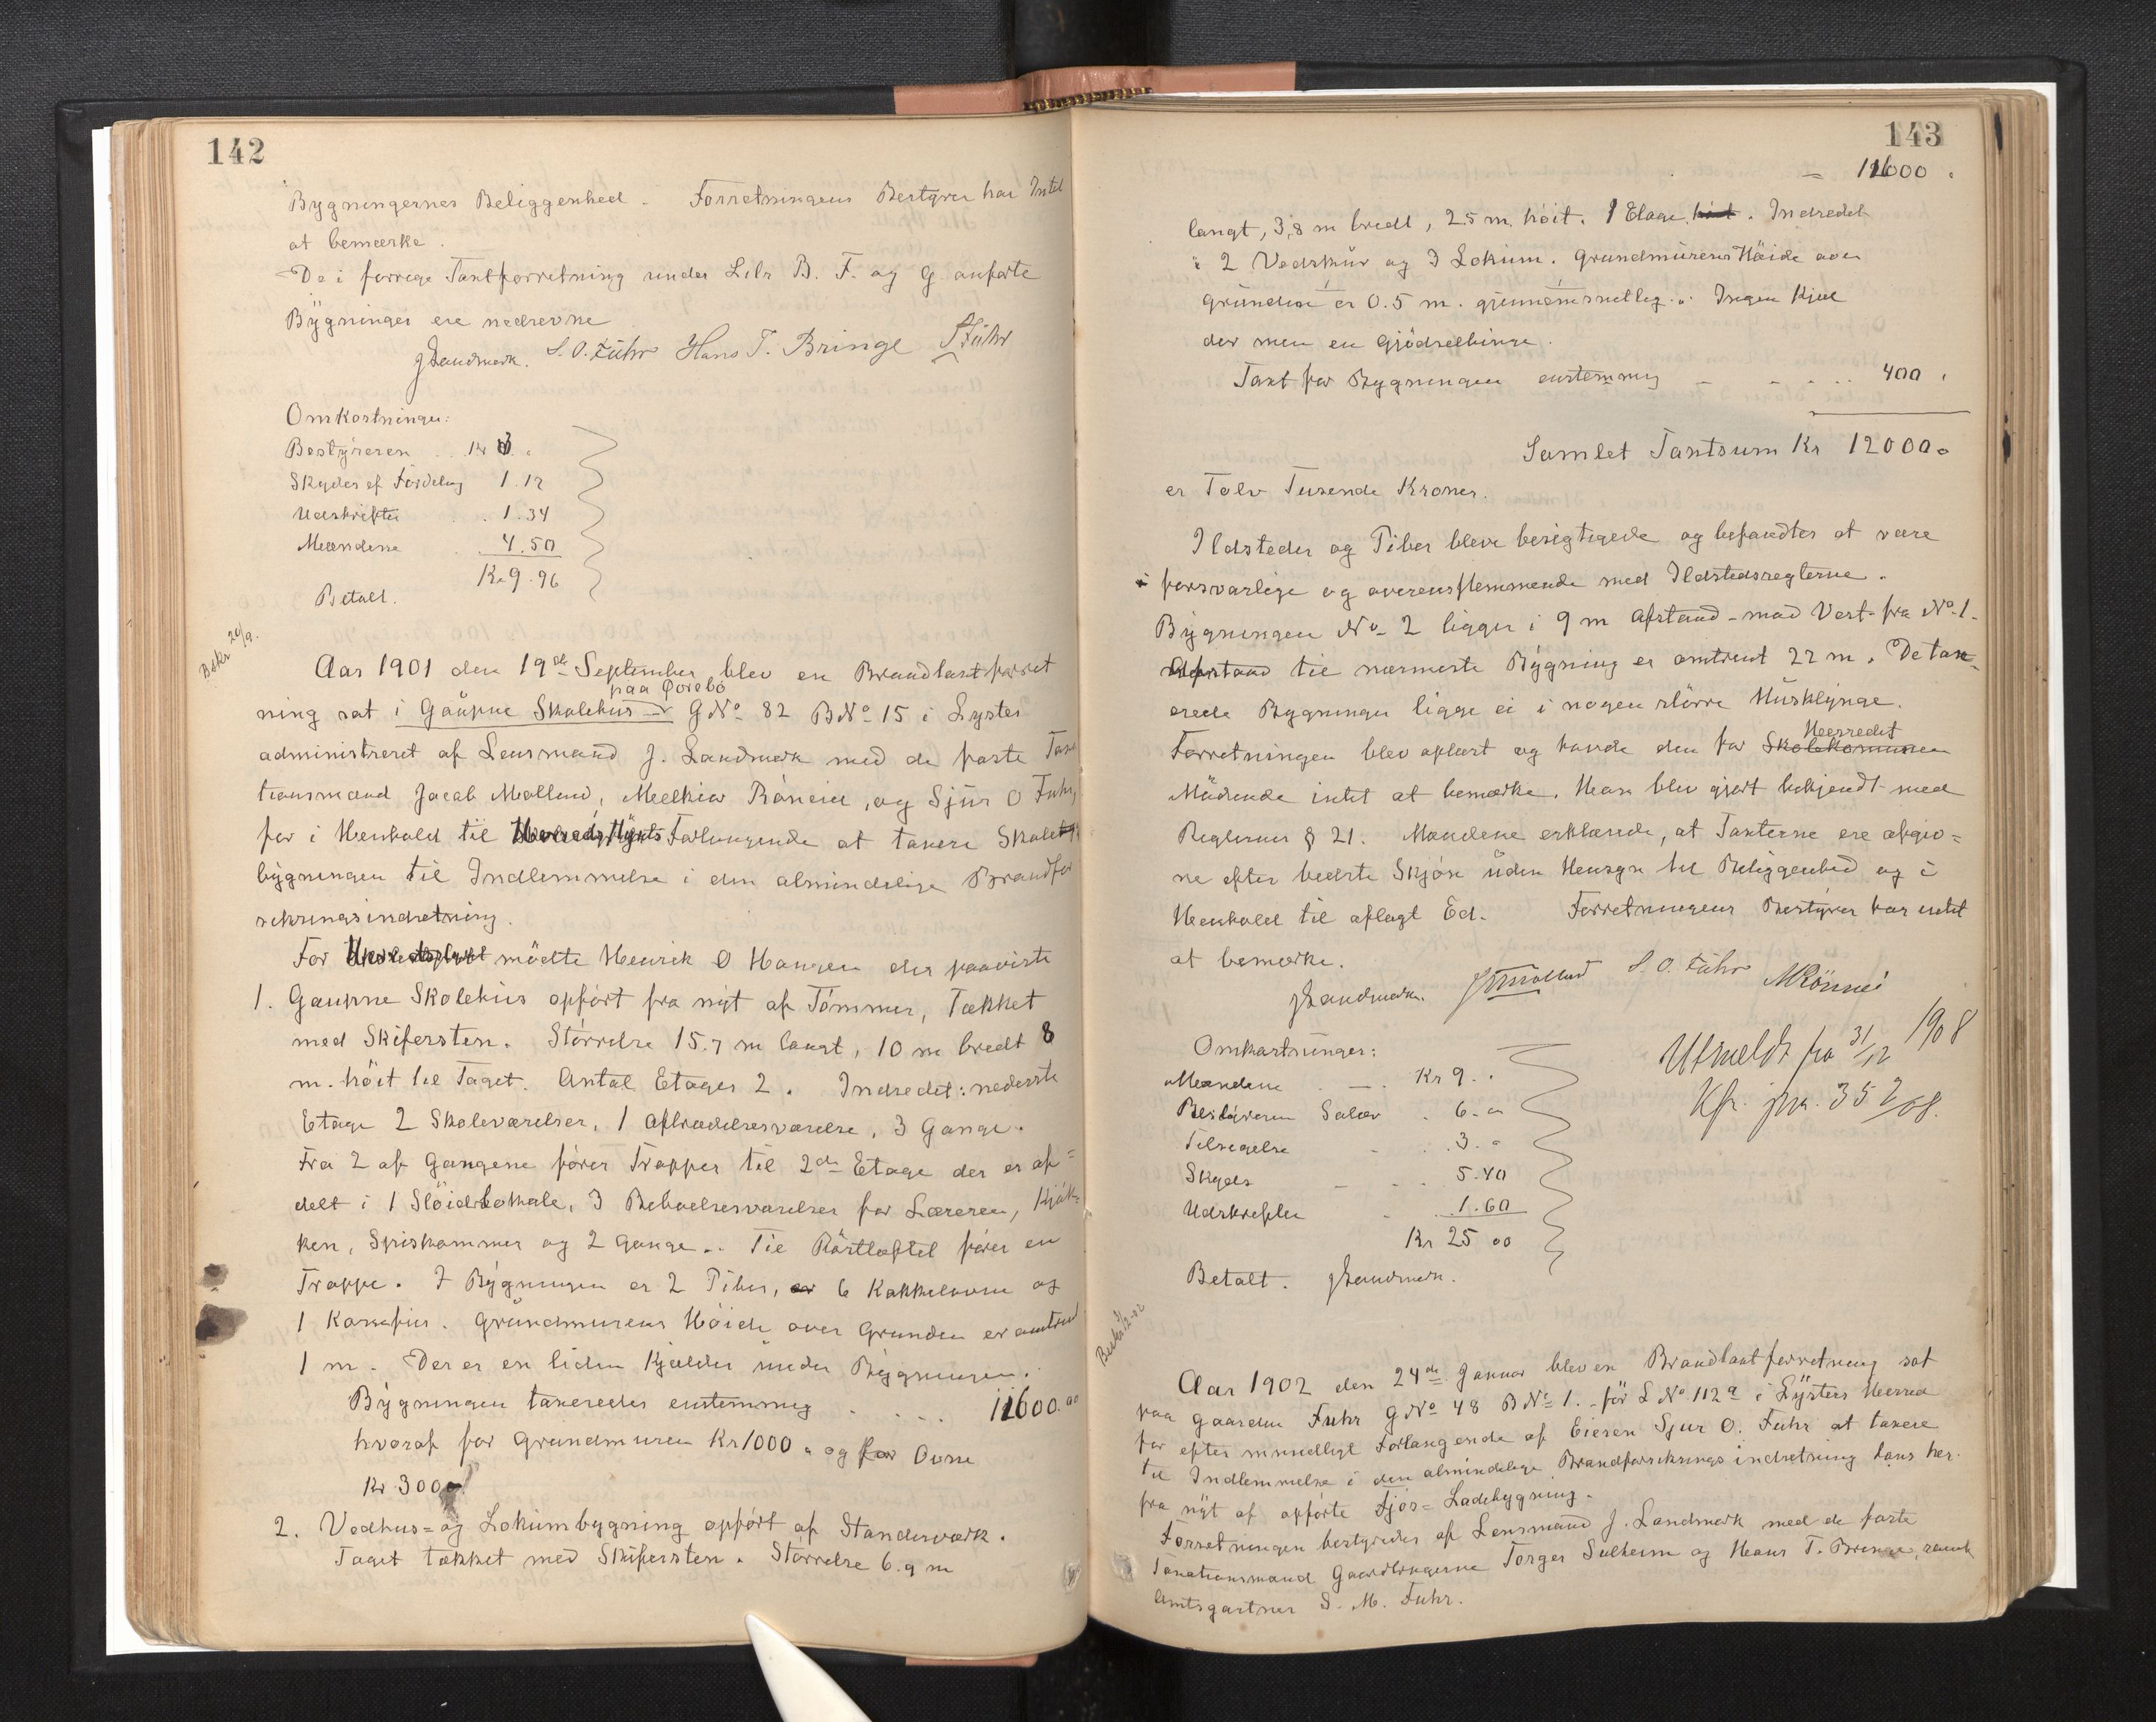 142
Bygningernes Beliggenhed. Forretningens Bestyrer har Intet
at bemærke.
De i forrige Taxtforretning under Litr B. F. og G. anførte
Bygninger ere nedrevne
J Landmark. S. O. Fuhr Hans T. Bringe S Fuhr
Omkostninger:
Bestyreren Kr 3.
Skyds ef Fordeling 1.12
Udskrifter 1.34
Mændene 4.50
Kr 9.96
Betalt.
Beskr 20/9.
Aar 1901 den 19de September blev en Brandtaxtforret
paa Øvrebø
ning sat i Gaupne Skolehus GNo 82 BNo 15 i Lyster
administreret af Lensmand J. Landmark med de faste Tax
tionsmænd Jacob Molland, Melkior Rönnei, og Sjur O Fuhr,
for i Henhold til Forlangende at taxere Skole
bygningen til Indlemmelse i den almindelige Brandfor
sikringsindretning.
For mödte Henrik O Haugen der paaviste
1. Gaupne Skolehus opfört fra nyt af Tömmer, Tækket
med Skifersten. Störrelse 15.7 m langt, 10 m bredt 8
m. höit til Taget. Antal Etager 2. Indredet: nederste
Etage 2 Skoleværelser, 1 Aftrædelsesværelse, 3 Gange.
Fra 2 af Gangene förer Trapper til 2den Etage der er af=
delt i 1 Slöidlokale, 3 Beboelsesværelser for Læreren, Kjök=
ken, Spiskammer og 2 Gange. Til Röstloftet förer en
Trappe. I Bygningen er 2 Piber, 6 Kakkelovne og
1 Komfur. Grundmurens Höide over Grunden er omtrent
1 m. Der er en liden Kjælder under Bygningen.
Bygningen taxeredes enstemmig 11600.00
hvoraf for Grundmuren Kr 1000 og for Ovne
Kr 300
2. Vedhus= og Lokumbygning opfört af Standerværk.
Taget tækket med Skifersten. Störrelse 6.9 m
143
11600
langt, 3,8 m bredt, 2.5 m. höit. 1 Etage. Indredet
i 2 Vedskur og 3 Lokum. Grundmurens Höide over
Grunden er 0.5 m. gjennemsnitlig. Ingen Kjæl
der men en Gjödselbinge.
Taxt for Bygningen enstemmig 400
Samlet Taxtsum Kr 12000
er Tolv Tusende Kroner.
Ildsteder og Piber bleve besigtigede og befandtes at være
forsvarlige og overensstemmende med Ildstedsreglerne.
Bygningen No 2 ligger i 9 m Afstand mod Vest fra No 1.
Afstand til nærmeste Bygning er omtrent 22 m. De tax
erede Bygninger ligge ei i nogen större Husklynge.
Herredet
Forretningen blev oplæst og havde den for Skolekommunen
Mödende intet at bemærke. Han blev gjort bekjendt med
Reglernes § 21. Mændene erklærede, at Taxterne ere afgiv=
ne efter bedste Skjön uden Hensyn til Beliggenhed og i
Henhold til aflagt Ed. Forretningens Bestyrer har intet
at bemærke.
J Landmark. J Molland S. O. Fuhr M Rönnei
Omkostninger:
Mændene Kr 9.
Bestyreren Salær 6.
Tilsigelse 3.
Skyds 5.40
Udskrifter 1.60
Kr 25 00
Betalt. J Landmark.
Utmeldt fra 31/12 1908
Kfr. jrn. 352/08.
Aar 1902 den 24de Januar blev en Brandtaxtforretning sat
paa Gaarden Fuhr GNo 48 BNo 1. för LNo 112a i Lysters Herred
for efter mundligt Forlangende af Eieren Sjur O. Fuhr at taxere
til Indlemmelse i den almindelige Brandforsikringsindretning hans her=
fra nyt af opförte Fjös= Ladebygning.
Forretningen bestyredes af Lensmand J. Landmark med de faste
Taxationsmænd Gaardbrugerne Torger Sulheim og Hans T. Bringe, samt
Amtsgartner S. M. Fuhr.